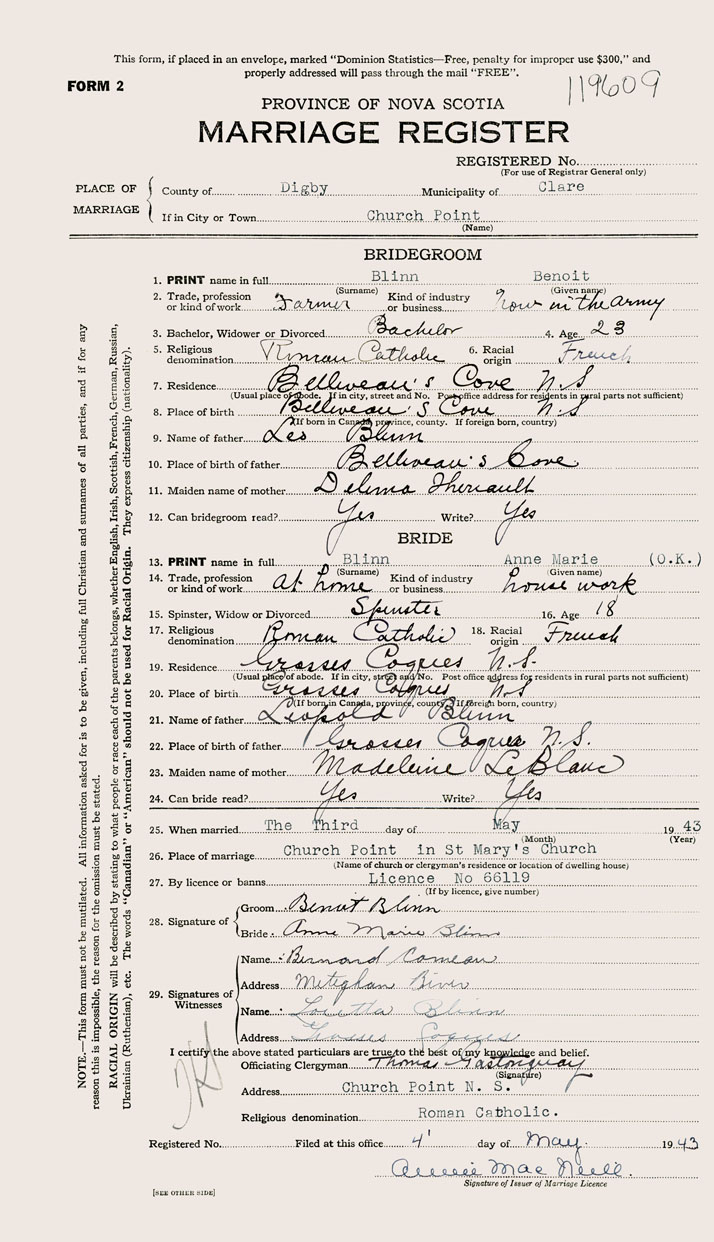 This form, if placed in an envelope, marked "Dominion Statistics—Free, penalty for improper use $300," and
properly addressed will pass through the mail "FREE".
FORM 2
119609
PROVINCE OF NOVA SCOTIA
MARRIAGE REGISTER
REGISTERED No.
(For use of Registrar General only)
PLACE OF MARRIAGE
County of Digby Municipality of Clare
If in City or Town Church Point
(Name)
BRIDEGROOM
1. PRINT name in full Blinn Benoit
(Surname) (Given name)
2. Trade, profession or kind of work Farmer Kind of industry or business now in the army
3. Bachelor, Widower or Divorced Bachelor 4. Age 23
5. Religious denomination Roman Catholic 6. Racial origin French
7. Residence Belliveau's Cove N.S
(Usual place of abode. If in city, street and No. Post office address for residents in rural parts not sufficient)
8. Place of birth Belliveau's Cove N.S
(If born in Canada, province, county. If foreign born, country)
9. Name of father Leo Blinn
10. Place of birth of father Belliveau's Cove
11. Maiden name of mother Delima Theriault
12. Can bridegroom read? Yes Write? Yes
BRIDE
13. PRINT name in full Blinn Anne Marie (O.K.)
(Surname) (Given name)
14. Trade, profession or kind of work at home Kind of industry or business house work
15. Spinster, Widow or Divorced Spinster 16. Age 18
17. Religious denomination Roman Catholic 18. Racial origin French
19. Residence Grosses Coques N.S.
(Usual place of abode. If in city, street and No. Post office address for residents in rural parts not sufficient)
20. Place of birth Grosses Coques N.S
(If born in Canada, province, county. If foreign born, country)
21. Name of father Leopold Blinn
22. Place of birth of father Grosses Coques N.S.
23. Maiden name of mother Madeleine LeBlanc
24. Can bride read? Yes Write? Yes
25. When married The Third day of May 1943
(Month) (Year)
26. Place of marriage Church Point in St Mary's Church
(Name of church or clergyman's residence or location of dwelling house)
27. By licence or banns Licence No 66119
(If by licence, give number)
28. Signature of
Groom Benoit Blinn
Bride Anne Marie Blinn
29. Signatures of Witnesses
Name Bernard Comeau
Address Meteghan River
Name Loretta Blinn
Address Grosses Coques
I certify the above stated particulars are true to the best of my knowledge and belief.
Officiating Clergyman Thomas Gastonguay
(Signature)
Address Church Point N. S.
Religious denomination Roman Catholic.
Registered No. Filed at this office 4' day of May 1943
Annie Mac Neill.
Signature of Issuer of Marriage Licence
[SEE OTHER SIDE]
NOTE.—This form must not be mutilated. All information asked for is to be given, including full Christian and surnames of all parties, and if for any
reason this is impossible, the reason for the omission must be stated.
RACIAL ORIGIN will be described by stating to what people or race each of the parents belongs, whether English, Irish, Scottish, French, German, Russian,
Ukrainian (Ruthenian), etc. The words "Canadian" or "American" should not be used for Racial Origin. They express citizenship (nationality).